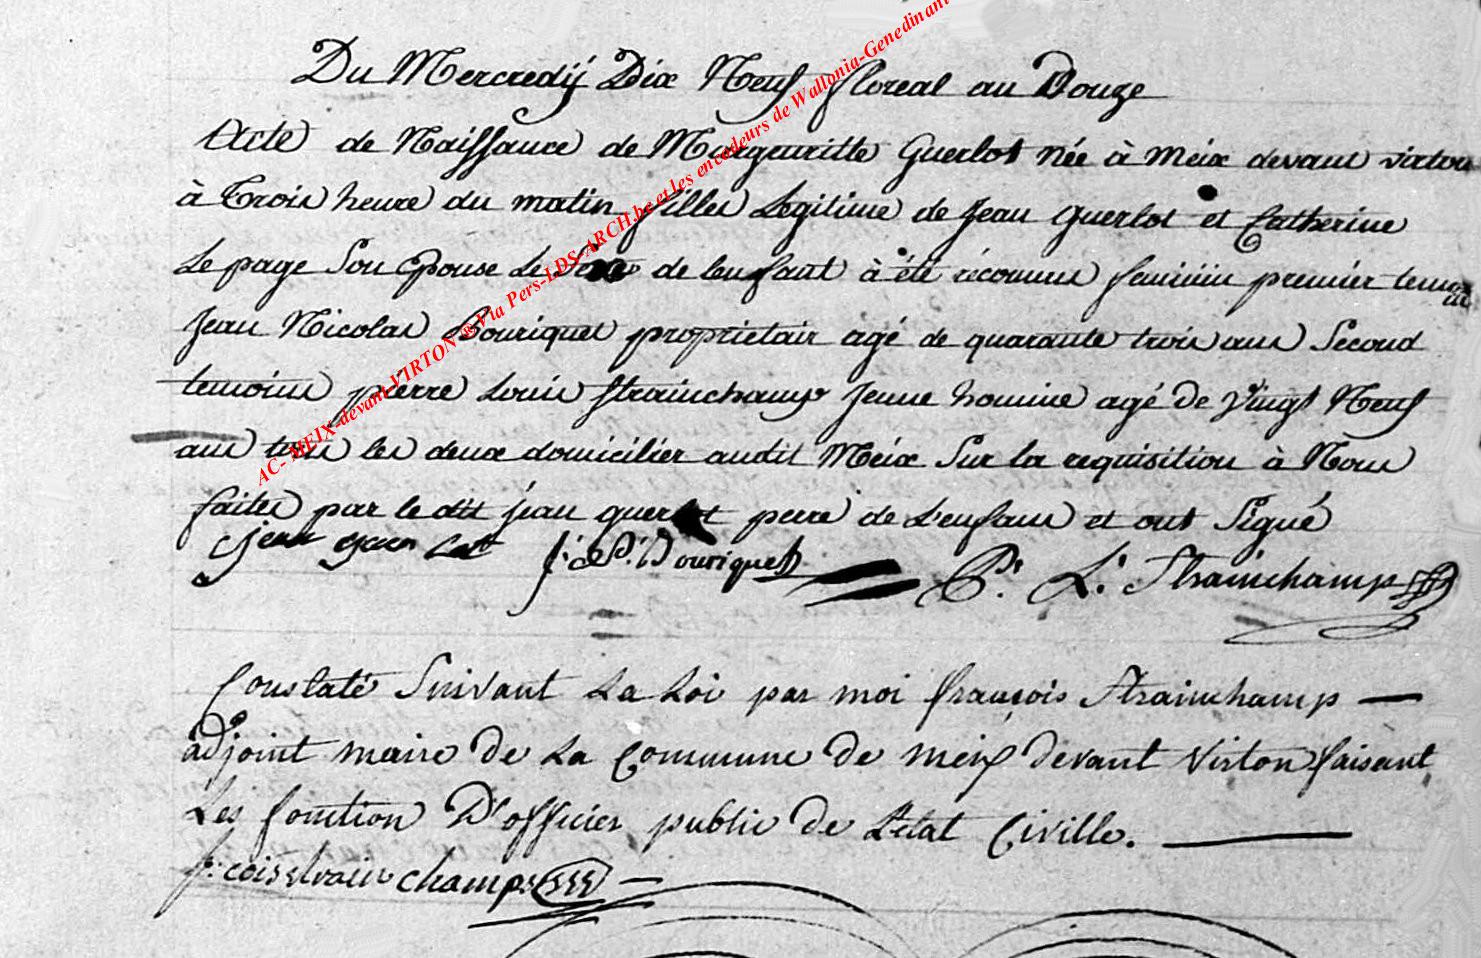 Du Mercredij Dix Neuf floreal an Douze
Acte de Naissance de Margeuritte Guerlot née à meix devant virton
à Trois heure du matin filles Legitime de Jean Guerlot et Catherine
Le page Son Epouse Le Sexe de lenfant à été réconnus feminin premier temoin
Jean Nicolas Bouriquet proprietair agé de quarante trois ans Second
temoins pierre Louis Strainchamp Jeune homme agé de Vingt Neuf
ans tous les deux domicilier audit Meix Sur la requisition à Nous
faites par le dit jean guerlot pere de L'enfans et ont Signé
jean guer Lot J: N: Bouriquet P: L: Strainchamp
Constaté Suivant La Loi par moi françois Strainchamp —
adjoint maire de La Commune de meix devant Virton faisant
Les fonction D'officier public de L'etat Civille. —
f: cois strain champs —
AC- MEIX-devant-VIRTON ® Via Pers-LDS-ARCH.be et les encodeurs de Wallonia-Genedinant